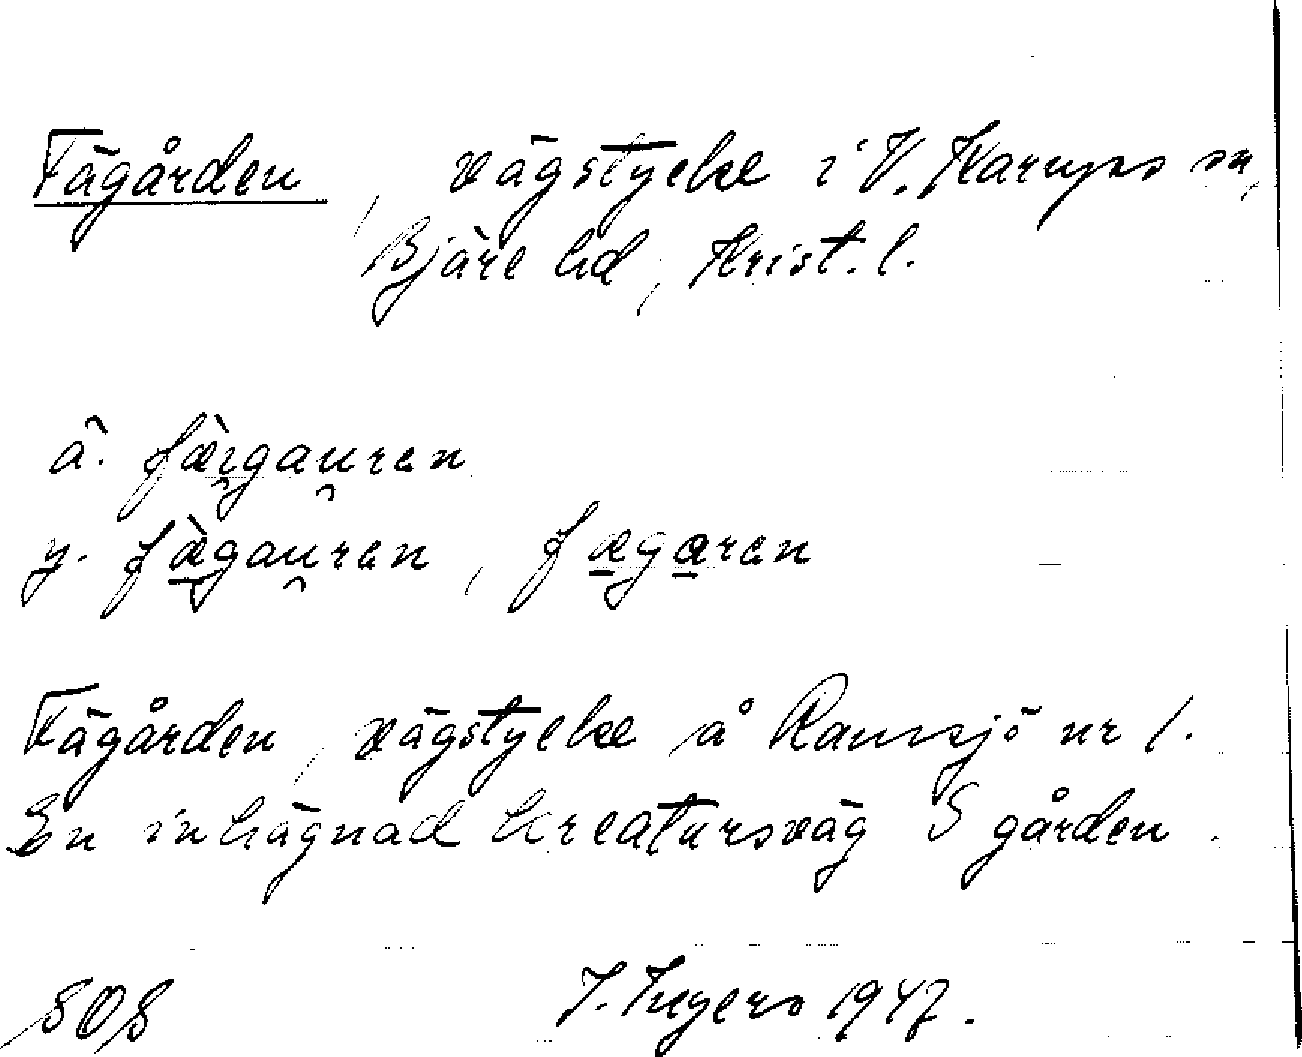 Fägården, vägstycke i V. Karups sn,
Bjäre hd, Krist. l.
ä. fæ̀i̯gau̯ren
y. fæ̀gau̯ren, fægaren
Fägården, vägstycke å Ramsjö nr 1.
En inhägnad kreatursväg S gården.
SOS
I. Ingers 1947.